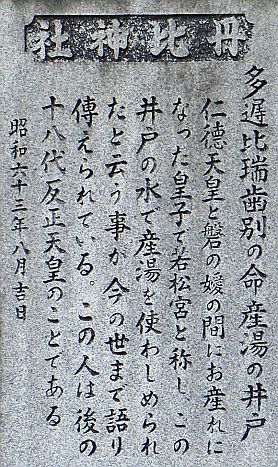 丹比神社
多遅比瑞歯別の命産湯の井戸
仁徳天皇と磐の媛の間にお産れに
なった皇子で若松宮と称し、この
井戸の水で産湯を使わしめられ
たと云う事が今の世まで語り
傳えられている。この人は後の
十八代反正天皇のことである
昭和六十三年八月吉日